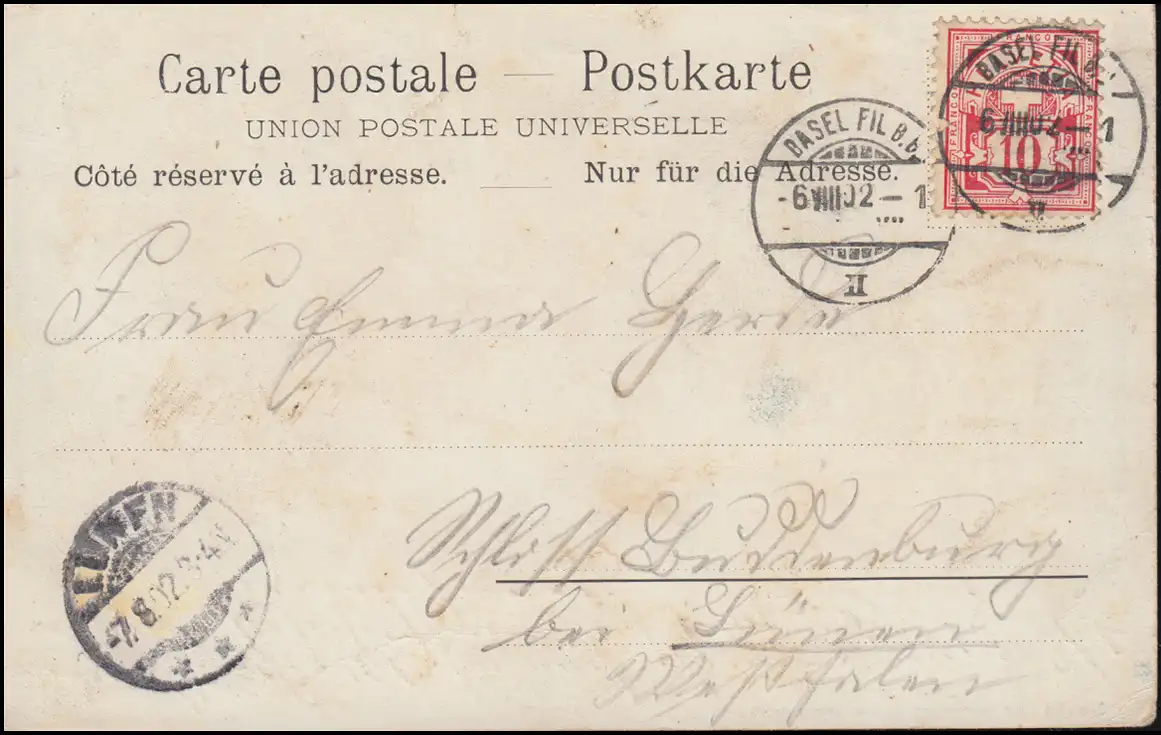 Carte postale — Postkarte
UNION POSTALE UNIVERSELLE
Côté réservé à l'adresse. — Nur für die Adresse.
FRANCO
FRANCO
FRANCO
10
BASEL FIL B.b.
6 VIII 02 — 1
II
BASEL FIL B.b.
- 6 VIII 02 — 1
II
Frau Emma
Schloss Buddenburg
bei Lünen
Westfalen
LÜNEN
-7.8.02.